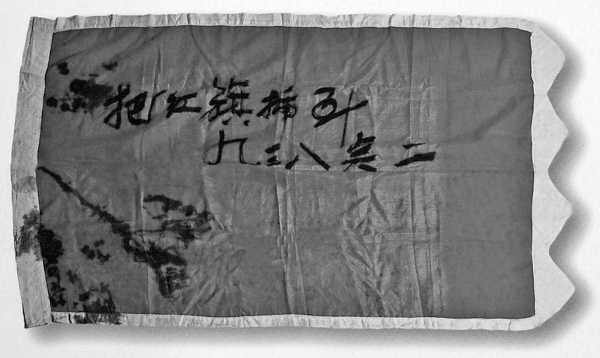 把红旗插到
九三八奌二